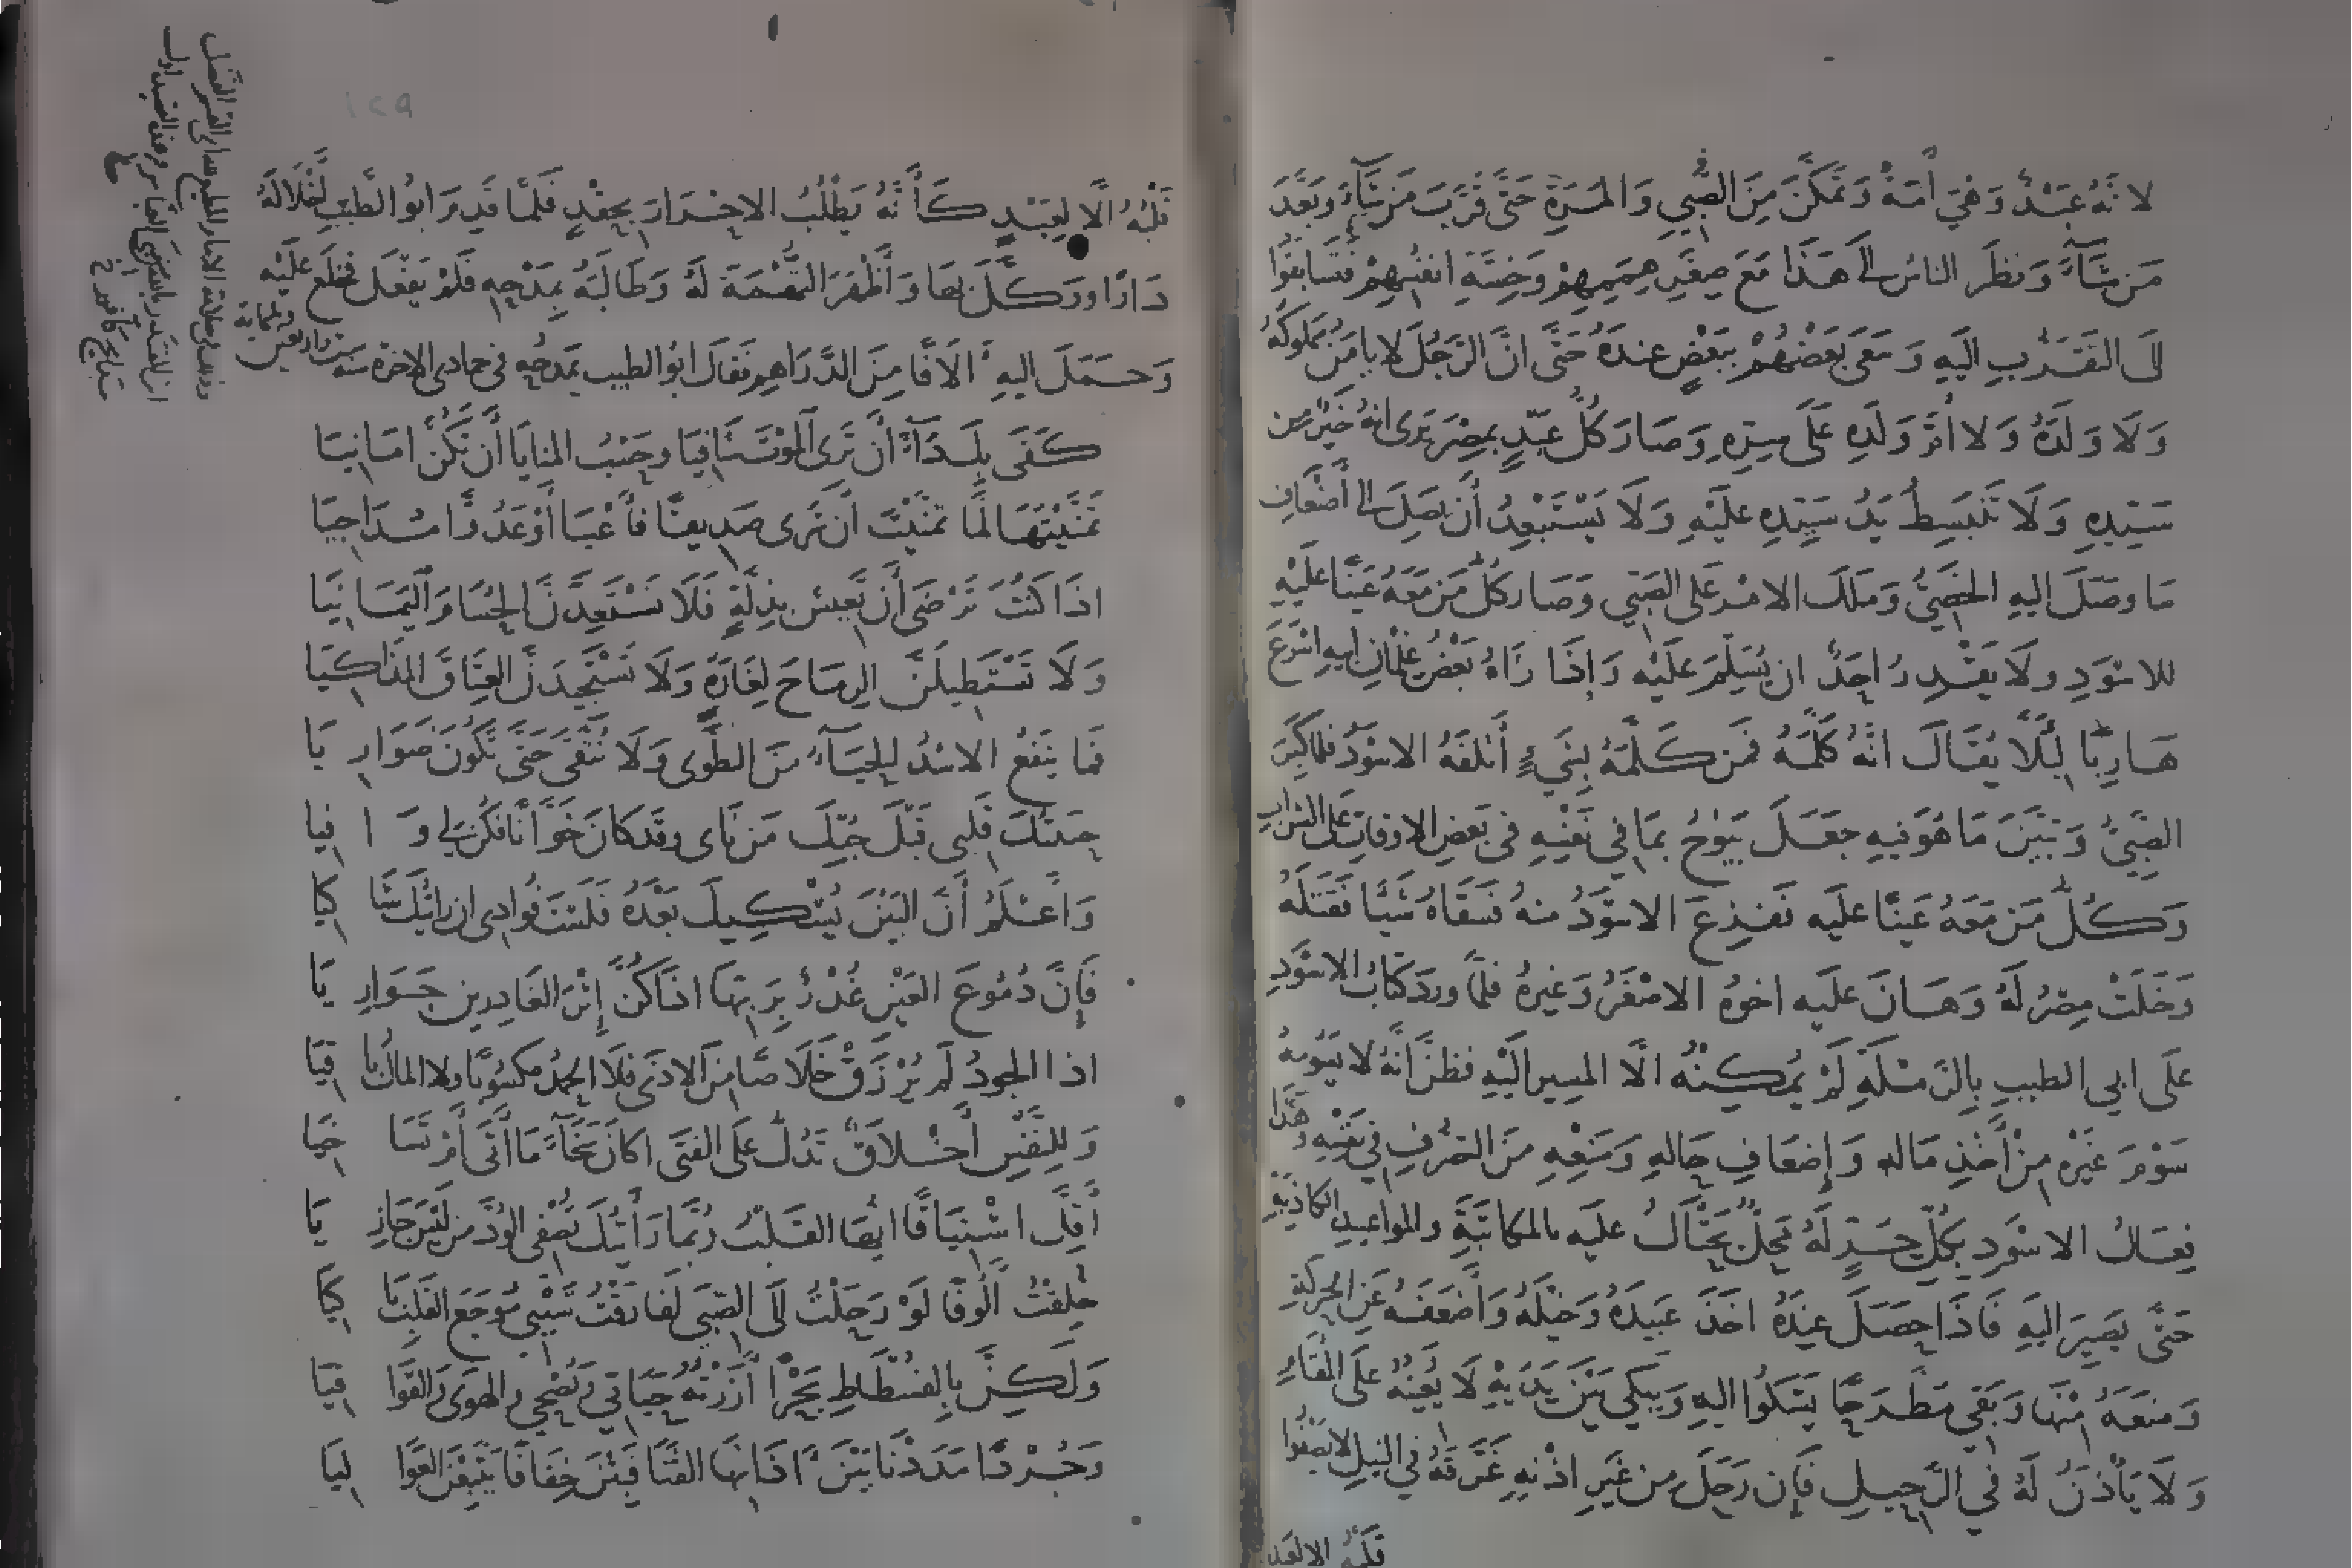 لانّهُ عَبْدٌ وَهِيَ أَمَةٌ وَتمكّنَ مِنَ الصَّبِي وَالمَرَةِ حَتَّى قَرَّبَ مَن شَآءَ وَبَعَّدَ
مَن شَآءَ وَنظَرَ الناسُ الى هَذَا مَعَ صِغَرِ هِمَمِهِمْ وَخِسَّةِ انفُسِهِمْ فَتَسَابَقُوا
الَى التقَرُّبِ اليَهِ وَسَعَى بَعْضُهُمْ ببَعْضٍ عندَهُ حَتَّى انَّ الرَّجُلَ لا يامَنُ مَملوكَهُ
وَلَا وَلَدَهُ وَلا وَلَدِهِ عَلَى سِرِّهِ وَصَارَ كُلُّ عَبْدٍ بمِصْرَ يَرَى انهُ خَيْرٌ من
سَيّدِهِ وَلَا تَنبَسِطُ يَدُ سَيِّدِهِ عَليَهِ وَلَا يَسْتَبْعِدُ أَن يَصِلَ الى أَضْعَافِ
مَا وصَلَ اليهِ الخَصِيُّ وَمَلَكَ الامْرَ عَلى الصَّبِي وَصَارَ كلُّ مَن مَعَهُ عَينًا عَلَيْهِ
للاسْوَدِ ولَا يَقْدِرُ احَدٌ ان يُسَلّمَ عَلَيْه وَإِذَا رَاهُ بَعْضُ غلمَانِ ابيهِ اسْرَعَ
هَارِبًا لئِلَّا يُقَالَ انَّهُ كَلَّمَهُ فَمَن كَلَّمَهُ بِشَيءٍ أَتلَفَهُ الاسْوَدُ فلما كَبِرَ
الصَّبِيُّ وَتبَيَّنَ مَا هُوَ فيهِ جعَلَ يَبُوْحُ بمَا في نَفْسِهِ في بَعْضِ الاوقاتِ عَلَى الشرَابِ
وَكُلُّ مَن مَعَهُ عَينًا عليَه فَفَزِعَ الاسْوَدُ منهُ فَسَقَاهُ شَيئًا فَقَتَلَهُ
وَخَلَتْ مِصْرُ لَهُ وَهَانَ عليَه اخوُهُ الاصْغَرُ وَغيرهُ فلمَّا وردَ كتَابُ الاسْوَدِ
عَلَى ابي الطيبِ بِالرَّمْلَةِ لَمْ يُمكِنْهُ الَّا المسِير اليَهِ فظنَّ أَنَّهُ لا يَسُومهُ
سَوْمَ غَيْره مِنْ أَخْذِ مَالهِ وَإِضعَافِ حَالِهِ وَمَنْعِهِ مِنَ التصَرُّفِ في نَفْسِهِ وَهَذَا
فِعَالُ الاسْوَدِ بكُلِّ حُرٍّ لَهُ محلّ يَحْتَالُ عليَه بالمكاتَبَةِ والمواعيدِ الكاذِبَةِ
حَتَّى يَصِيرَ اليَهِ فَاذَا حصَلَ عِندَهُ اخَذَ عَبيدَهُ وَخيْلَهُ وَأَضْعَفَهُ عَنِ الحَركَةِ
وَمنعَهُ مِنْهَا وَبَقِي مُطَّرَحًا يَشكُوا اليهِ وَيبكي بَيْنَ يدَيْهِ لَا يُعِينهُ عَلَى المُقَامِ
وَلَا يَأذَنُ لَهُ في الرَّحِيلِ فَإن رَحَلَ من غَيرِ اذْنِهِ غَرَّقَهُ في النيلِ لا يَصْفُوا
قَلبهُ الا لعبد
قَلْبُهُ الَّا لِعَبْدٍ كَأَنَّهُ يَطْلُبُ الاحْرَارَ بِحِقْدٍ فَلَمَّا قَدِمَ ابُو الطَّيّب اخْلَا لَهُ
دَارًا ووَكَّلَ بهَا وَأَظْهَرَ التُّهْمَةَ لَهُ وَطَالَبَهُ بِمَدْحِهِ فَلَمْ يَفْعَل فخلَعَ عَلَيْهِ
وَحَمَلَ اليهِ الَافًا مِنَ الدَّرَاهِمِ فقَالَ ابُو الطيب يَمدَحُهِ في جمادى الاخرة سنه
ست واربعين وثلثمائة
كَفَى بِكَ دَآءً أَن تَرَى المَوْتَ شَافيَا وحَسْبُ المنايَا أَن تَكُنَّ امَانيَا
تمَنَّيْتَهَا لَمَّا تمَنيْتَ أَن تَرَى صَدِيقًا فأَعْيَا أَوْ عَدُوًّا مُدَاجِيَا
اذَا كنتُ تَرْضَى أَن تَعِيش بذِلَّةٍ فَلَا تَسْتَعِدَّنَّ الحُسَامَ اليَمَانِيَا
وَلَا تَسْتَطِيلَنَّ الرمَاحَ لِغَارَةٍ وَلَا تَسْتَجِيدَنَّ العِتَاقَ المذَاكيَا
فمَا ينَفعُ الاسْدَ الحَيَآءُ مِنَ الطَّوَى وَلَا تُتَّقَى حَتَّى تَكُونَ ضَوَارِ يَا
حببتُكَ قَلبي قَبْلَ حُبِّكَ مَن نَاى وقَد كانَ غَدَّارًا فكن لي وَ ا فيا
وَأَعْلَمُ أَنَّ البَيْنَ يُشْكِيكَ بَعْدَهُ فَلَسْتَ فُوَادِي ان رَايْتُكَ شَا كيَا
فَإِنَّ دُمُوعَ العَيْنِ غُدْرٌ بِرَبِّهَا اذَا كُنَّ إِثْرَ الغَادِرِين جَوَارِ يَا
اذا الجودُ لَم يُرْزَقْ خَلَاصًا مِنَ الاذَى فلَا الحمدُ مكسُوبًا ولا المالُ بَا قيَا
وَلِلنَّفْسِ أَخْلاَقٌ تَدُلُّ عَلَى الفتَى اكانَ سَخَآءً مَا أَتَى أَمْ تَسَا خيَا
أَقِلَّ اشْتِيَاقًا ايُّهَا القَلْبُ رُبَّمَا رَأَيْتُكَ تُصْفِى الوُدَّ مَن لَيْسَ جَازِ يَا
خُلِقْتُ أَلُوفًا لَوْ رَحَلْتُ الَى الصِّبَى لفَارَقْتُ شَيْبِي مُوجَعَ القَلْبِ بَا كيَا
وَلَكِنَّ بِالفُسْطَاطِ بَحْرًا أَزَرْتُهُ حَيَاتِي وَنُصْحِي والهوَى وَالقَوَا فيَا
وَجُرْدًا مَدَدْنَا بَيْنَ آذَانهَا القَنَا فَبِتْنَ خِفَافًا يَتَّبِعْنَ العَوَا ليَا